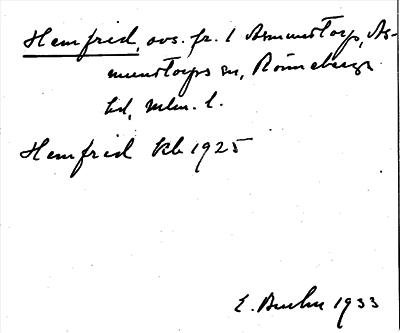 Hemfrid, avs. fr. 1 Asmundtorp, As-
mundtorps sn, Rönnebergs
hd, Mlm. l.
Hemfrid kb 1925
E. 1933